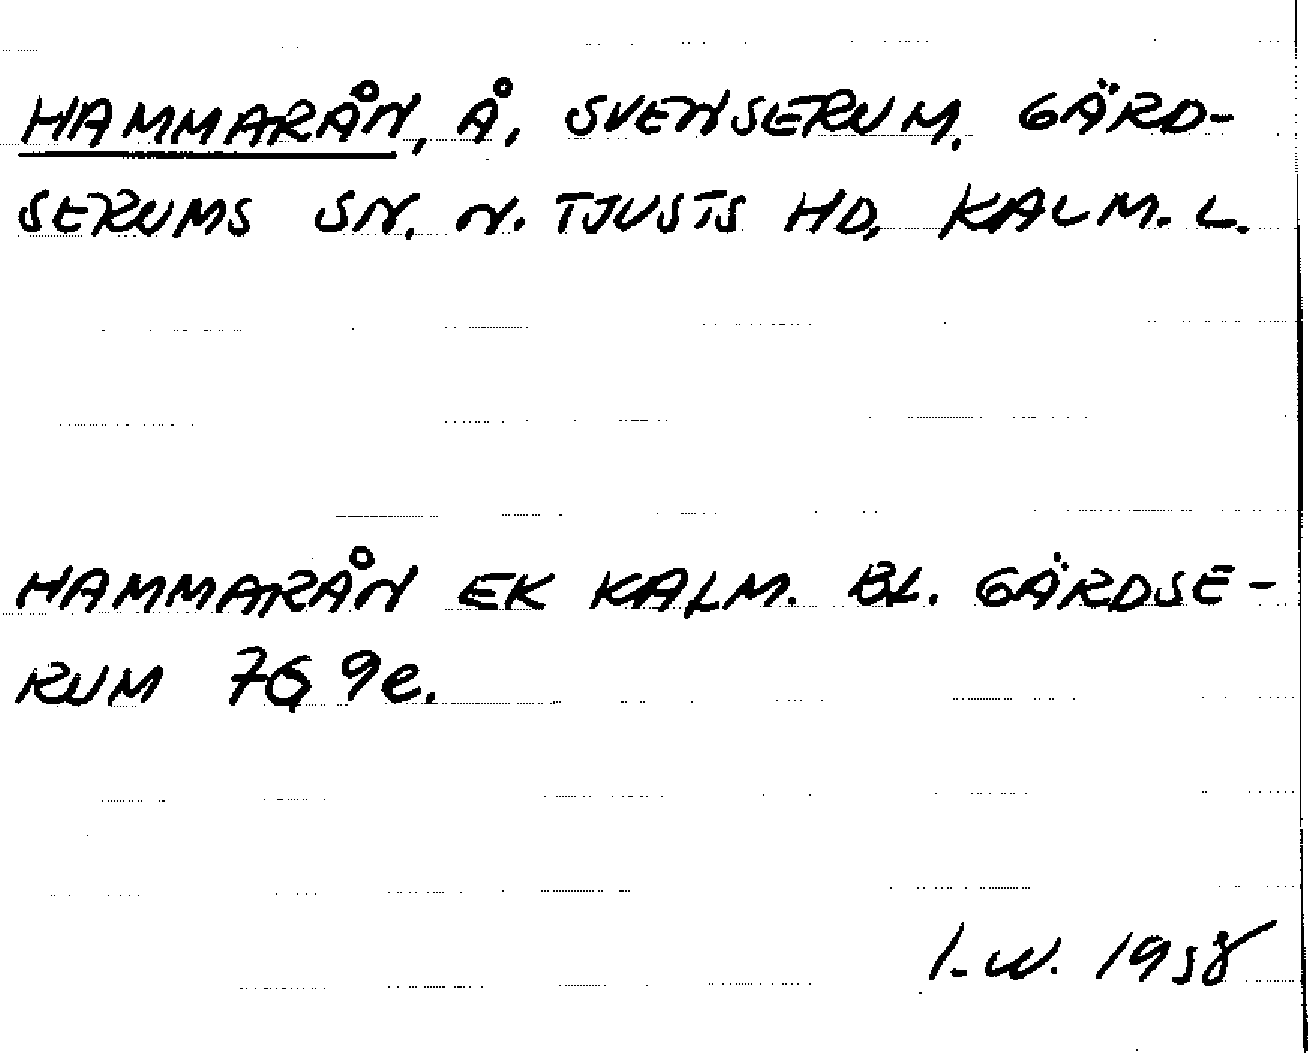 HAMMARÅN, Å, SVENSERUM, GÄRD-
SERUMS SN. N. TJUSTS HD, KALM. L.
HAMMARÅN EK KALM. BL. GÄRDSE-
RUM 76 9e.
I.W. 1958